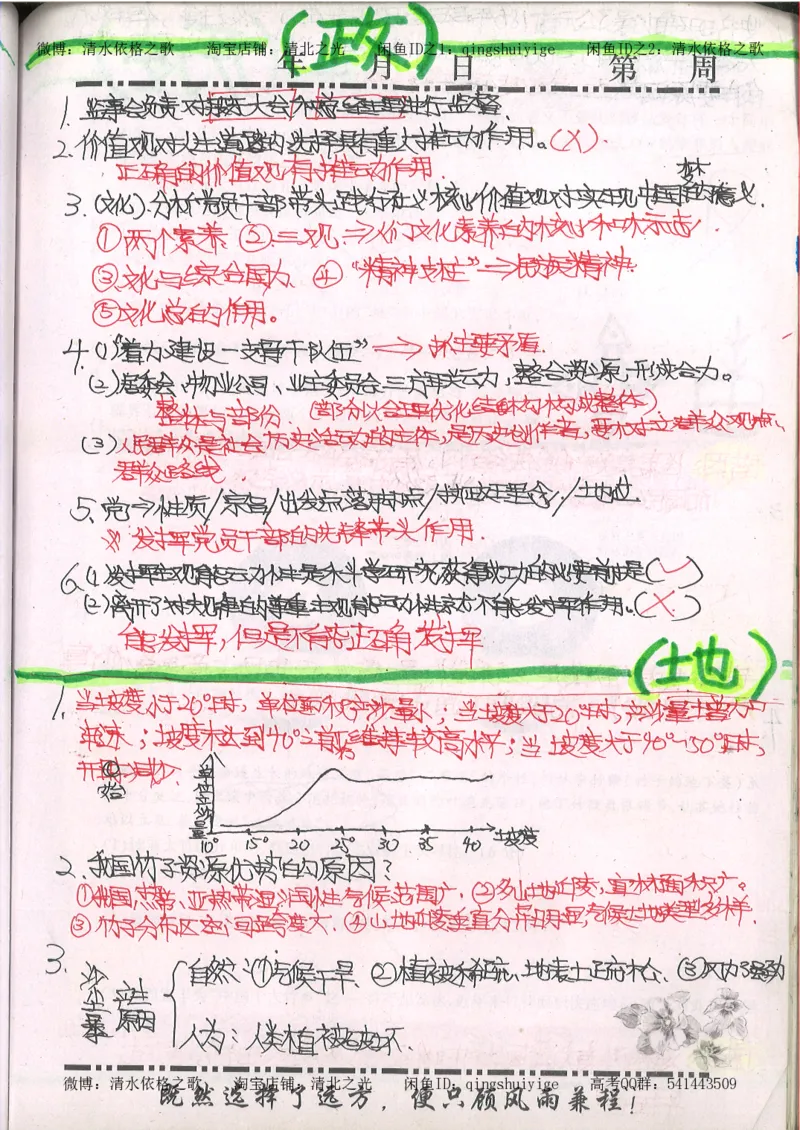 微博：清水依格之歌 淘宝店铺：清北之光 闲鱼ID之1：qingshuiyige 闲鱼ID之2：清水依格之歌
(政)
年 月 日 第 周
1. 监事会负责对股东大会和总经理进行监督.
2. 价值观对人生道路的选择具有重大推动作用。(X)
正确的价值观有推动作用.
3.(文化).分析党员干部带头践行社义核心价值观对实现中国梦的意义.
①两个素养 ②三观⇒人们文化素养的核心和标志
③文化与综合国力 ④"精神支柱"⇒民族精神
⑤文化总的作用。
4.(1)"着力建设一支骨干队伍"→抓主要矛盾.
(2)居委会、物业公司、业主委员会三方联动,整合资源,形成合力。
整体与部份.(部份以合理优化结构构成整体)
(3)人民群众是社会历史活动的主体,是历史创作者,要树立群众观点,
群众路线
5. 党→性质/宗旨/出发点落脚点/执政理念/地位
※发挥党员干部的先锋带头作用.
6.(1)发挥主观能动性是科学研究获得成功的必要前提(✓)
(2)离开了对客观规律的尊重主观能动性就不能发挥作用.(X)
能发挥,但是不能正确发挥
(地)
1. 当坡度小于20°时,单位面积产沙量小;当坡度大于20°时,产沙量增大
起来;坡度未达到40°之前维持较高水平;当坡度大于40°~50°时,
开始减少
单位产沙量
10° 15° 20 25 30 35 40 坡度
2. 我国竹子资源优势的原因?
①我国热带、亚热带湿润性气候范围广.②多山地丘陵,宜林面积广。
③竹子分布区空间跨度大.④山地丘陵垂直分带明显,气候土地类型多样.
3. 沙尘暴产生原因
自然:①气候干旱.②植被稀疏、地表土疏松、③风力强劲
人为:人类植被破坏.
微博：清水依格之歌 淘宝店铺：清北之光 闲鱼ID：qingshuiyige 高考QQ群：541443509
既然选择了远方，便只顾风雨兼程！